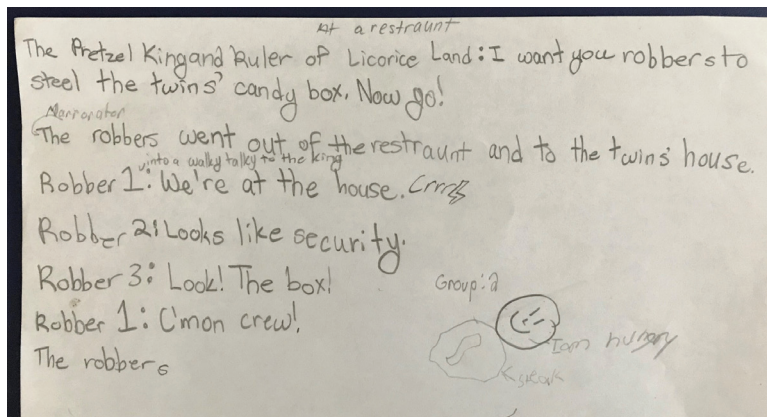 At a restraunt
The Pretzel King and Ruler of Licorice Land: I want you robbers to
steel the twins' candy box. Now go!
Narrorator
The robbers went out of the restraunt and to the twins' house.
into a walky talky to the king
Robber 1: We're at the house. Crrrs
Robber 2: Looks like security.
Robber 3: Look! The box!
Group: 2
Robber 1: C'mon crew!
I am hungry
The robbers